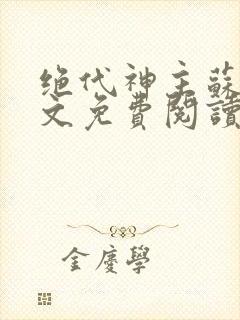 绝代神主蘇
文免費閱讀
金慶學